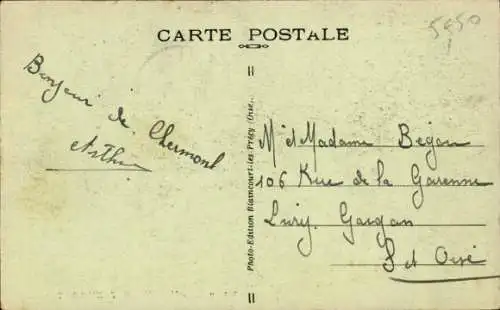 CARTE POSTALE
5550
Bonjour de Clermont
Arthur
Photo-Edition Blaincourt-les Précy (Oise
M et Madame Begou
106 Rue de la Garenne
Livry. Gargan
S et Oise